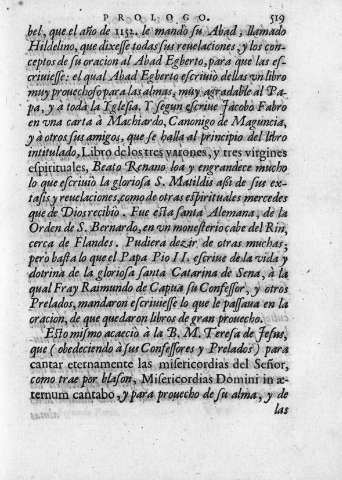 PROLOGO. 519
bel, que el año de 1152. le mandò su Abad, llamado
Hildelino, que dixesse todas sus reuelaciones, y los con-
ceptos de su oracion al Abad Egberto, para que las es-
criuiesse: el qual Abad Egberto escriuiò dellas vn libro
muy prouechoso para las almas, muy agradable al Pa-
pa, y à toda la Yglesia. Y segun escriue Jacobo Fabro
en vna carta à Machiardo, Canonigo de Maguncia,
y à otros sus amigos, que se halla al principio del libro
intitulado, Libro de los tres varones, y tres virgines
espirituales, Beato Renano loa y engrandece mucho
lo que escriuiò la gloriosa S. Matildis assi de sus ex-
tasis y reuelaciones, como de otras espirituales mercedes
que de Dios recibiò. Fue esta santa Alemana, de la
Orden de S. Bernardo, en vn monesterio cabe del Rin,
cerca de Flandes. Pudiera dezir de otras muchas;
però basta lo que el Papa Pio II. escriue de la vida y
dotrina de la gloriosa santa Catarina de Sena, à la
qual Fray Raimundo de Capua su Confessor, y otros
Prelados, mandaron escriuiesse lo que le passaua en la
oracion, de que quedaron libros de gran prouecho.
Esto mismo acaeciò à la B. M. Teresa de Jesus,
que (obedeciendo à sus Confessores y Prelados) para
cantar eternamente las misericordias del Señor,
como trae por blason, Misericordias Domini in æ-
ternum cantabo, y para prouecho de su alma, y de
las